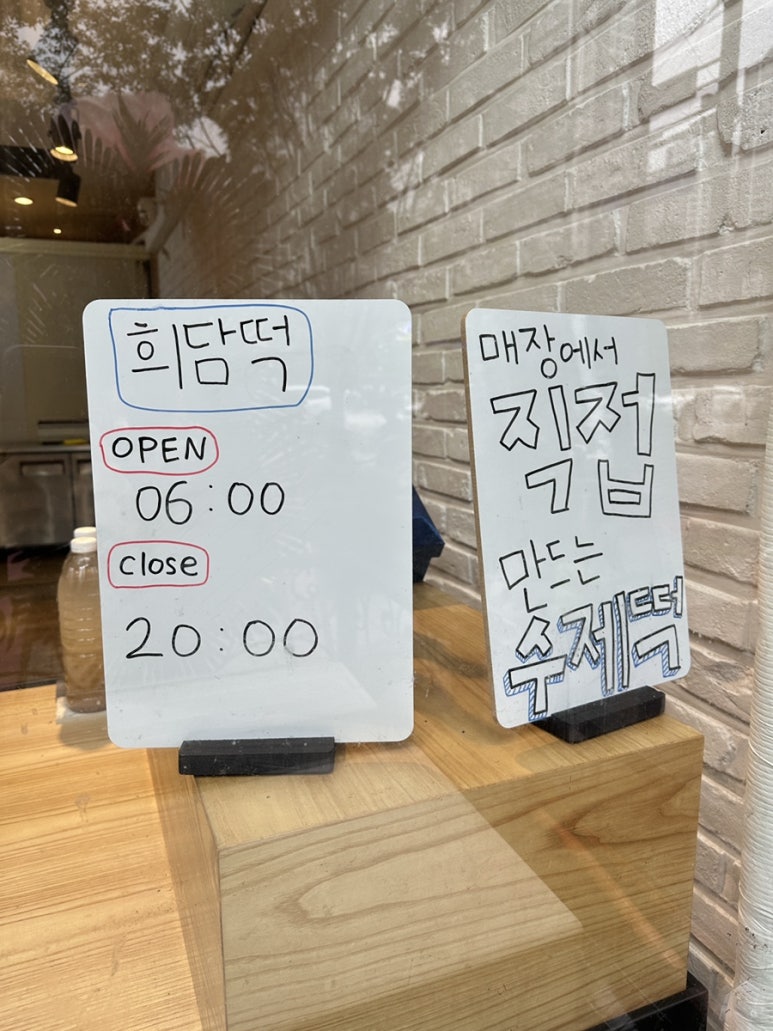 희담떡
OPEN
06:00
close
20:00
매장에서
직접
만드는
수제떡